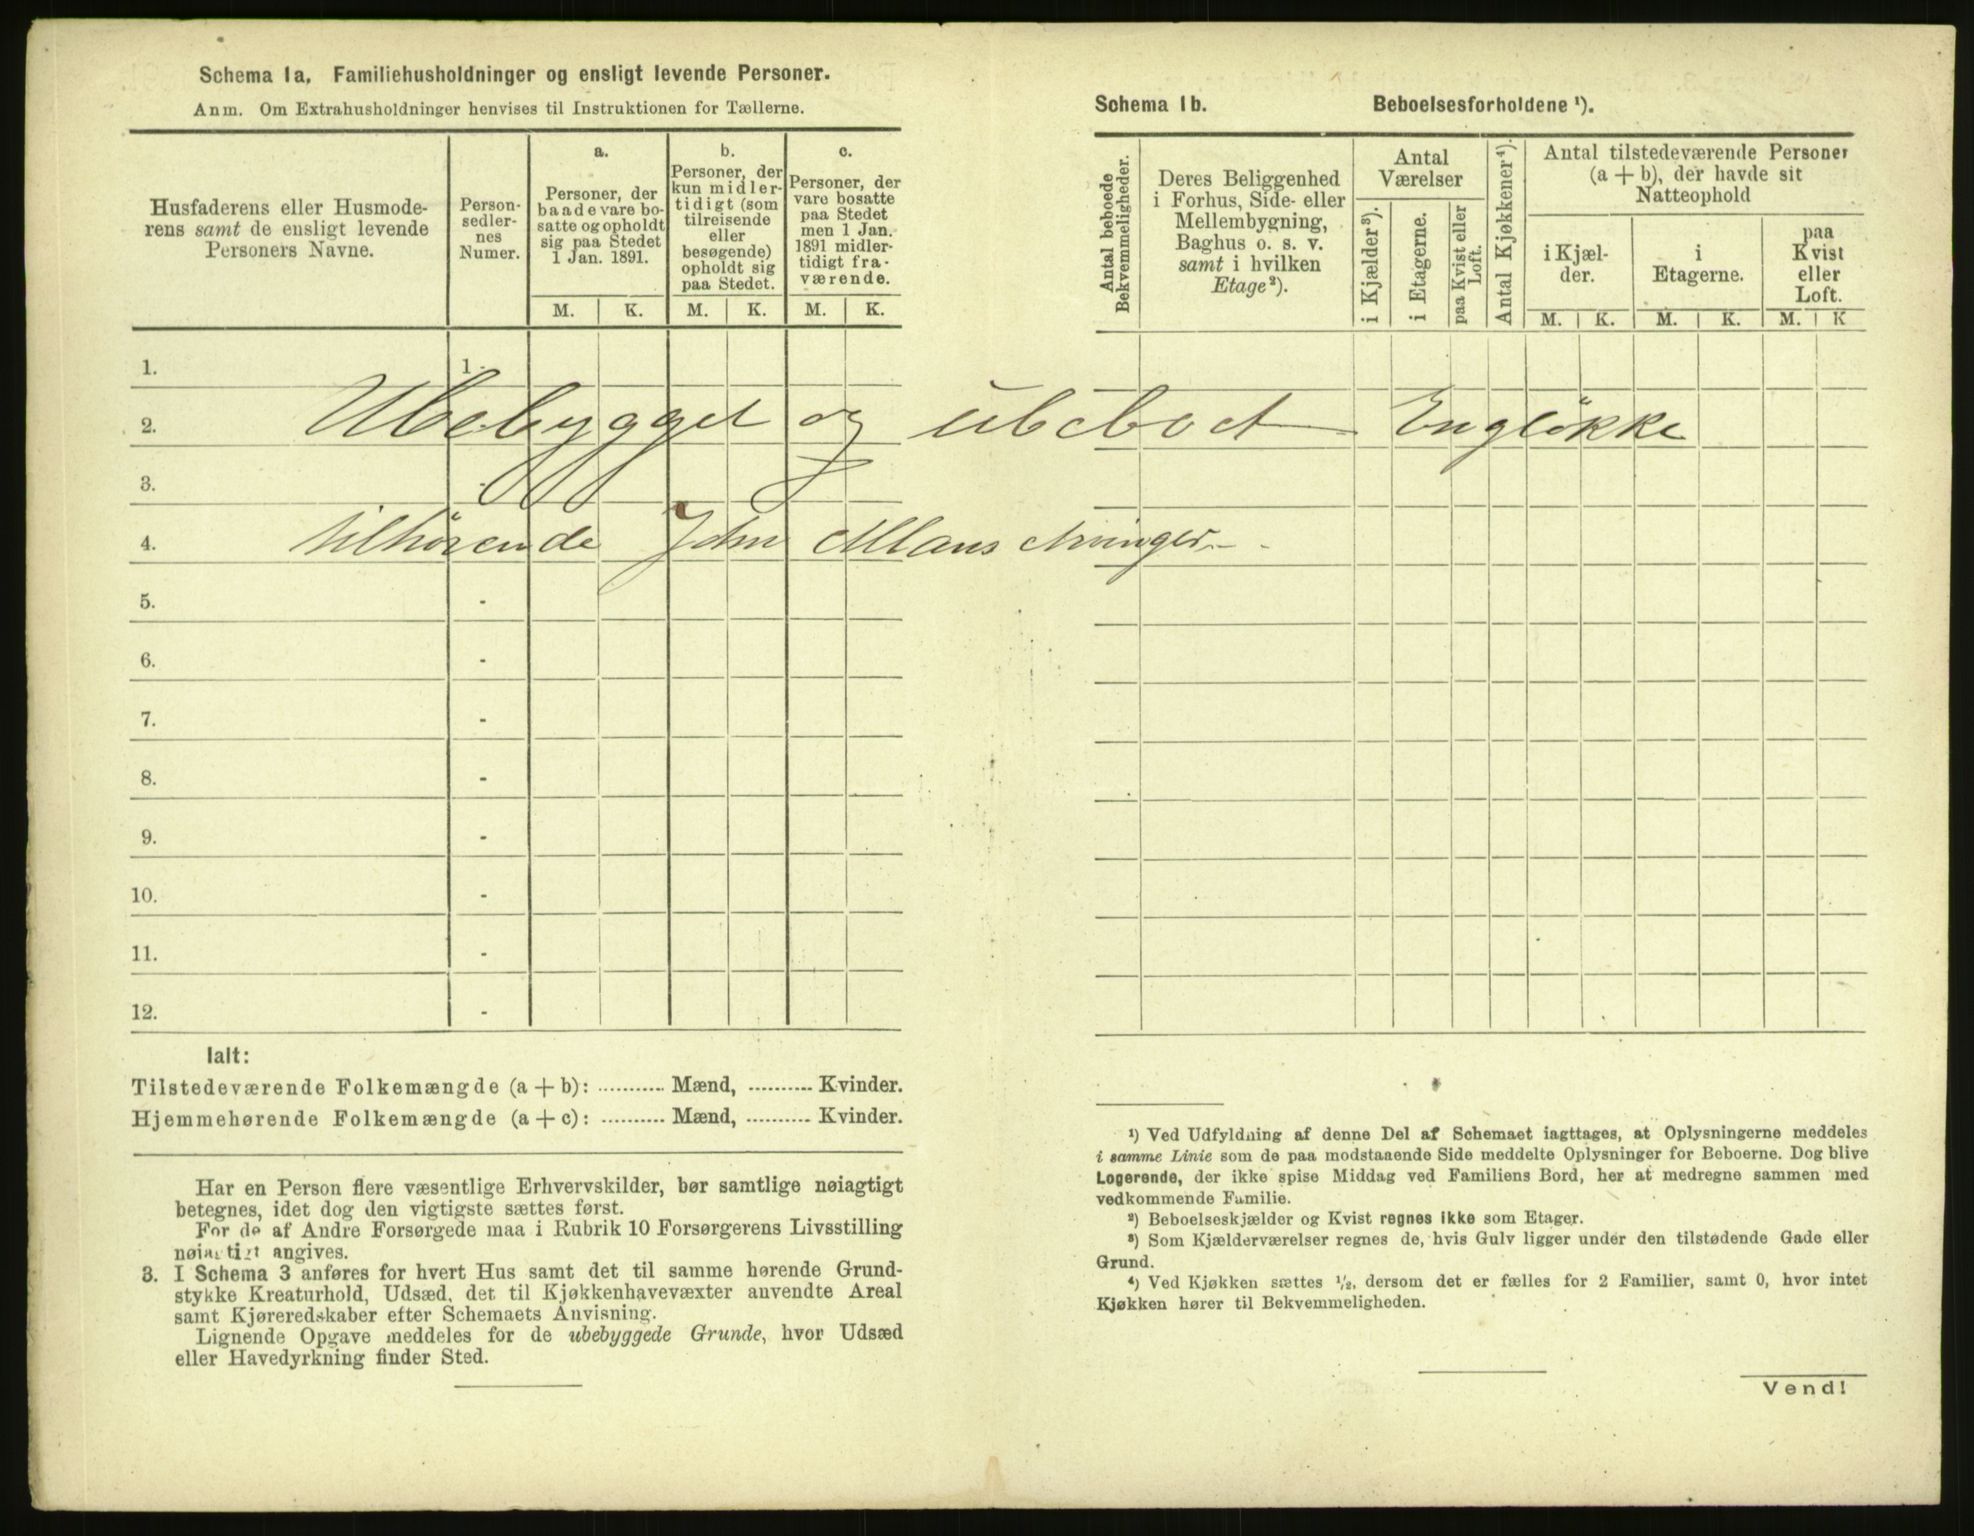 Schema 1a. Familiehusholdninger og ensligt levende Personer.
Anm. Om Extrahusholdninger henvises til Instruktionen for Tællerne.
Husfaderens eller Husmode-
rens samt de ensligt levende
Personers Navne.
Person-
sedler-
nes
Numer.
a.
Personer, der
baade vare bo-
satte og opholdt
sig paa Stedet
1 Jan. 1891.
b.
Personer, der
kun midler-
tidigt (som
tilreisende
eller
besøgende)
opholdt sig
paa Stedet.
c.
Personer, der
vare bosatte
paa Stedet
men 1 Jan.
1891 midler-
tidigt fra-
værende.
M. K. M. K. M. K.
1. 1.
2. Ubebygget og ubeboet Engløkke
3. -
4. tilhørende John
5. -
6. -
7. -
8. -
9. -
10. -
11. -
12. -
Ialt:
Tilstedeværende Folkemængde (a + b): ........... Mænd, .......... Kvinder.
Hjemmehørende Folkemængde (a + c): .......... Mænd, .......... Kvinder.
Har en Person flere væsentlige Erhvervskilder, bør samtlige nøiagtigt
betegnes, idet dog den vigtigste sættes først.
For de af Andre Forsørgede maa i Rubrik 10 Forsørgerens Livsstilling
nøiagtigt angives.
3. I Schema 3 anføres for hvert Hus samt det til samme hørende Grund-
stykke Kreaturhold, Udsæd, det til Kjøkkenhavevæxter anvendte Areal
samt Kjøreredskaber efter Schemaets Anvisning.
Lignende Opgave meddeles for de ubebyggede Grunde, hvor Udsæd
eller Havedyrkning finder Sted.
Schema 1b. Beboelsesforholdene ¹).
Antal beboede
Bekvemmeligheder.
Deres Beliggenhed
i Forhus, Side- eller
Mellembygning,
Baghus o. s. v.
samt i hvilken
Etage²).
Antal
Værelser
i Kjælder³).
i Etagerne.
paa Kvist eller
Loft.
Antal Kjøkkener⁴).
Antal tilstedeværende Personer
(a + b), der havde sit
Natteophold
i Kjæl-
der.
i
Etagerne.
paa
Kvist
eller
Loft.
M. K. M. K. M. K
¹) Ved Udfyldning af denne Del af Schemaet iagttages, at Oplysningerne meddeles
i samme Linie som de paa modstaaende Side meddelte Oplysninger for Beboerne. Dog blive
Logerende, der ikke spise Middag ved Familiens Bord, her at medregne sammen med
vedkommende Familie.
²) Beboelseskjælder og Kvist regnes ikke som Etager.
³) Som Kjælderværelser regnes de, hvis Gulv ligger under den tilstødende Gade eller
Grund.
⁴) Ved Kjøkken sættes ½, dersom det er fælles for 2 Familier, samt 0, hvor intet
Kjøkken hører til Bekvemmeligheden.
Vend!